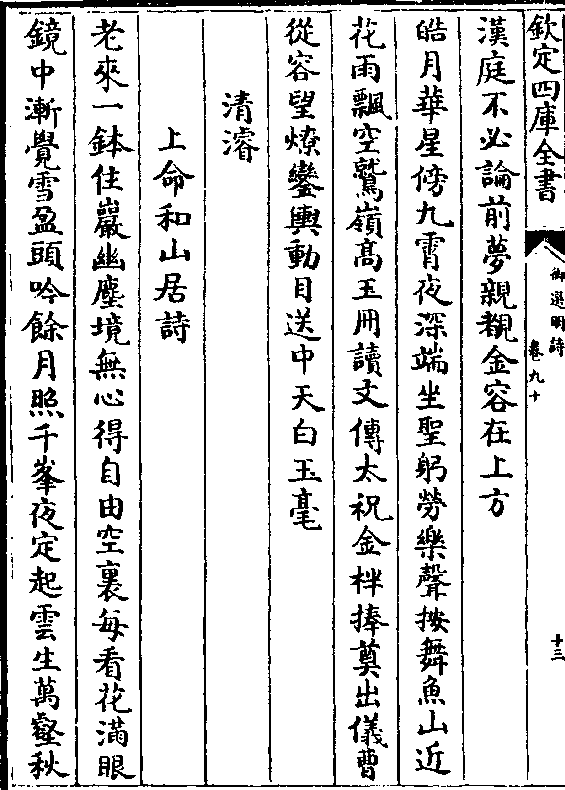 欽定四庫全書
御選明詩
卷九十
十三
漢庭不必論前夢親覩金容在上方
皓月華星傍九霄夜深端坐聖躬勞樂聲按舞魚山近
花雨飄空鷲嶺高玉冊讀文傳太祝金柈捧奠出儀曹
從容望燎鑾輿動目送中天白玉毫
清濬
上命和山居詩
老來一鉢住巖幽塵境無心得自由空裏每看花滿眼
鏡中漸覺雪盈頭吟餘月照千峯夜定起雲生萬壑秋